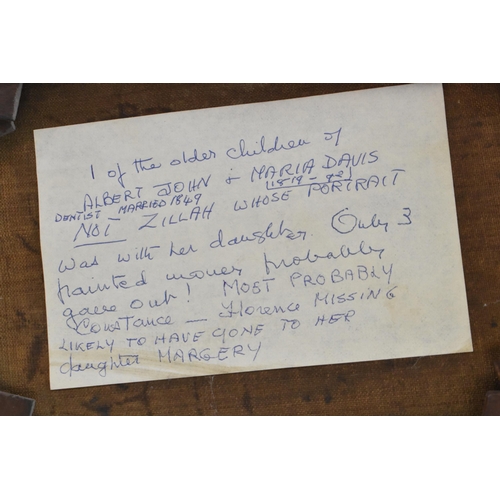 1 of the older children of
ALBERT JOHN & MARIA DAVIS
DENTIST - MARRIED 1849 (1819 - 92)
NOT ZILLAH WHOSE PORTRAIT
was with her daughter. Only 3
painted money probably
gave out! MOST PROBABLY
CONSTANCE - Florence MISSING
LIKELY TO HAVE GONE TO HER
daughter MARGERY